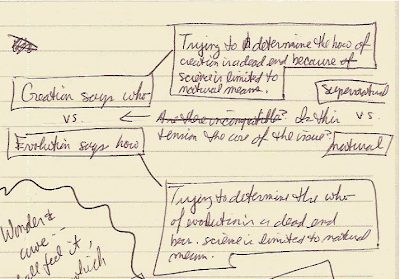 Trying to determine the how of
creation is a dead end because of
science is limited to
natural means.
Creation says who
supernatural
vs.
← Are these incompatible? Is this
vs.
Evolution says how
tension the core of the issue?
natural
Trying to determine the who
of evolution is a dead end
bec. science is limited to natural
means.
Wonder &
awe --
all feel it,
which